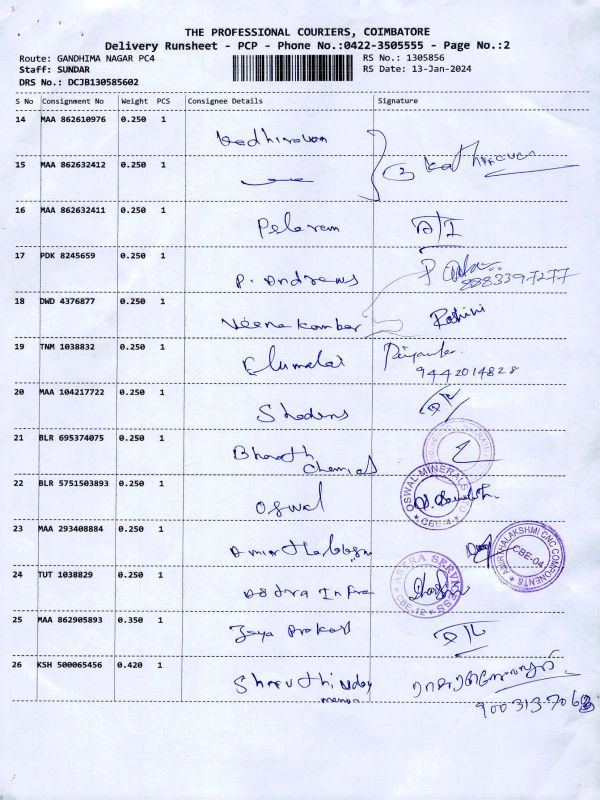 THE PROFESSIONAL COURIERS, COIMBATORE
Delivery Runsheet - PCP - Phone No.:0422-3505555 - Page No.:2
Route: GANDHIMA NAGAR PC4 RS No.: 1305856
Staff: SUNDAR RS Date: 13-Jan-2024
DRS No.: DCJB130585602
S No Consignment No Weight PCS Consignee Details Signature
14 MAA 862610976 0.250 1
15 MAA 862632412 0.250 1
16 MAA 862632411 0.250 1
17 PDK 8245659 0.250 1 P. Andrews 8883397277
18 DWD 4376877 0.250 1 Roshini
19 TNM 1038832 0.250 1 Elumalai Priyanka 9442014828
20 MAA 104217722 0.250 1
21 BLR 695374075 0.250 1 Bharath Chemicals
22 BLR 5751503893 0.250 1 Oswal OSWAL MINERALS CBE-4
23 MAA 293408884 0.250 1 AMIRTHALAKSHMI CNC COMPONENTS CBE-04
24 TUT 1038829 0.250 1 Infra ASTRA SERVICES CBE-12
25 MAA 862905893 0.350 1 Jaya Prakash
26 KSH 500065456 0.420 1 900313706